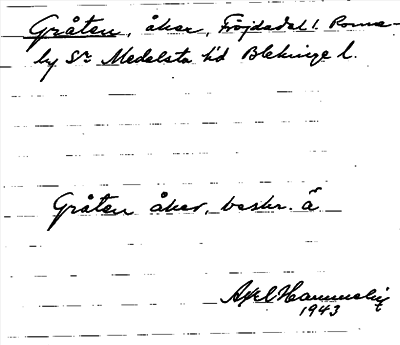 Gråten, åker, Fröjdadal 1 Ronne-
by Sn Medelsta hd Blekinge l.
Gråten åker, beskr. å.
Axel
1943